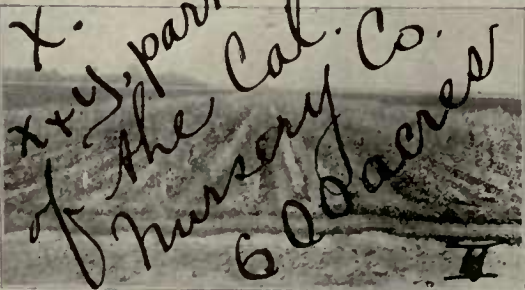 X.
X+Y, part
of the Cal. Co.
Nursery
600 acres
II